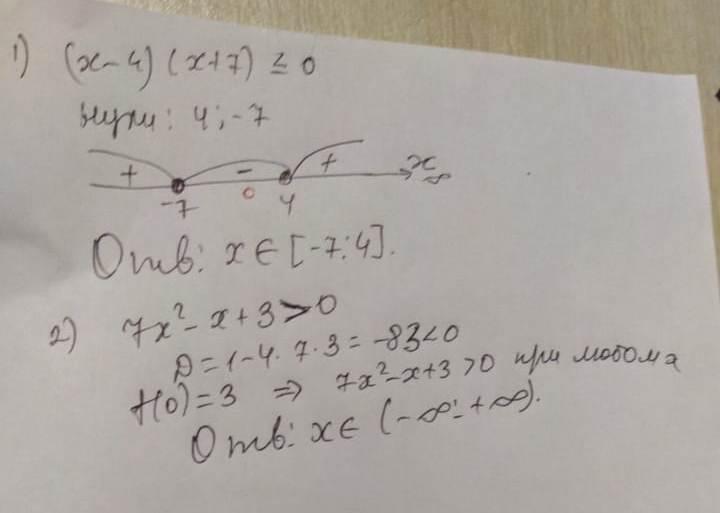 1) (x-4)(x+7) ≤ 0
нули: 4; -7
+ - + x
-7 0 4
Отв: x ∈ [-7; 4].
2) 7x² - x + 3 > 0
D = 1 - 4 · 7 · 3 = -83 < 0
f(0) = 3 ⇒ 7x² - x + 3 > 0 при любом x
Отв: x ∈ (-∞; +∞).